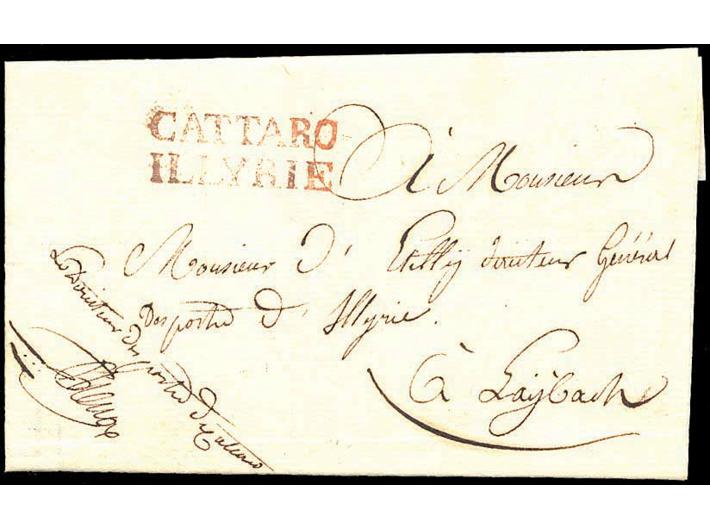 CATTARO
ILLYRIE
à Monsieur
Monsieur D' Etilly directeur Général
des postes d' Illyrie.
à Laÿbach
Le Directeur des postes de Cattaro